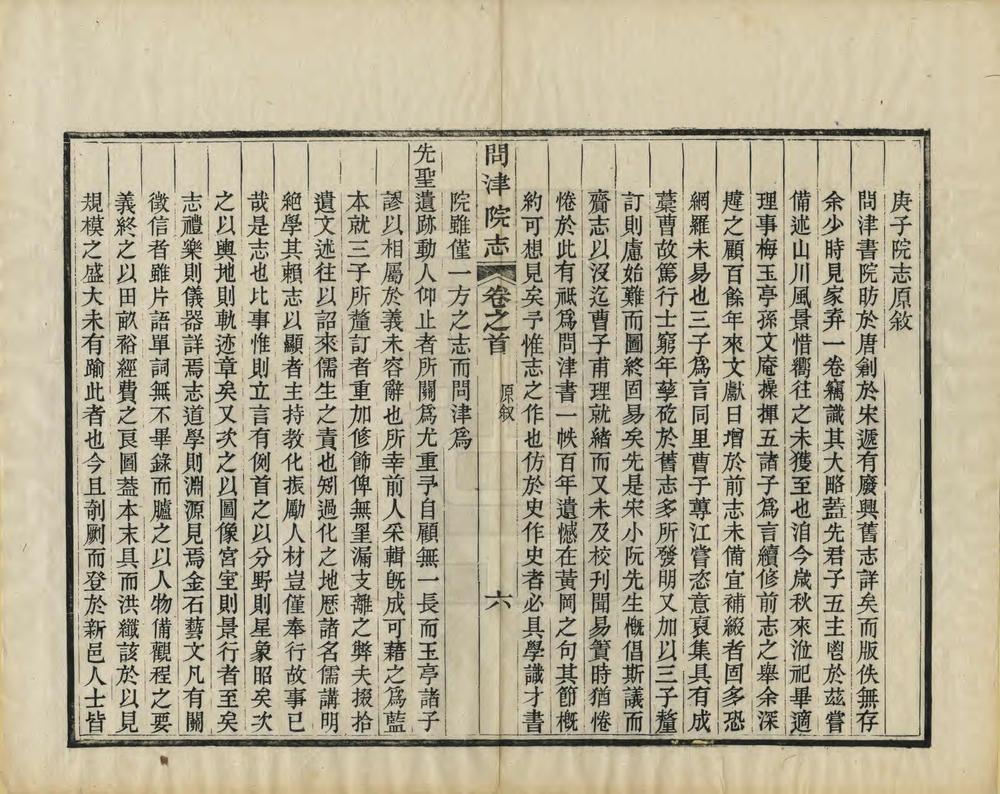 庚子院志原敘
問津書院昉於唐創於宋遞有廢興舊志詳矣而版佚無存
余少時見家弆一卷竊識其大略蓋先君子五主鬯於茲嘗
備述山川風景惜嚮往之未獲至也洎今歲秋來涖祀畢適
理事梅玉亭孫文庵操揮五諸子爲言續修前志之舉余深
韙之顧百餘年來文獻日增於前志未備宜補綴者固多恐
網羅未易也三子爲言同里曹子蓴江嘗恣意裒集具有成
藁曹故篤行士窮年孳矻於舊志多所發明又加以三子釐
訂則慮始難而圖終固易矣先是宋小阮先生慨倡斯議而
齎志以沒迄曹子甫理就緒而又未及校刊聞易簀時猶惓
惓於此有祇爲問津書一帙百年遺憾在黃岡之句其節槪
約可想見矣予惟志之作也仿於史作史者必具學識才書
問津院志
卷之首
原叙
六
院雖僅一方之志而問津爲
先聖遺跡動人仰止者所關爲尤重予自顧無一長而玉亭諸子
謬以相屬於義未容辭也所幸前人采輯旣成可藉之爲藍
本就三子所釐訂者重加修飾俾無罣漏支離之弊夫掇拾
遺文述往以詔來儒生之責也矧過化之地歷諸名儒講明
絕學其賴志以顯者主持教化振勵人材豈僅奉行故事已
哉是志也比事惟則立言有例首之以分野則星象昭矣次
之以輿地則軌迹章矣又次之以圖像宮室則景行者至矣
志禮樂則儀器詳焉志道學則淵源見焉金石藝文凡有關
徵信者雖片語單詞無不畢錄而臚之以人物備觀程之要
義終之以田畝裕經費之良圖葢本末具而洪纖該於以見
規模之盛大未有踰此者也今且剞劂而登於新邑人士皆